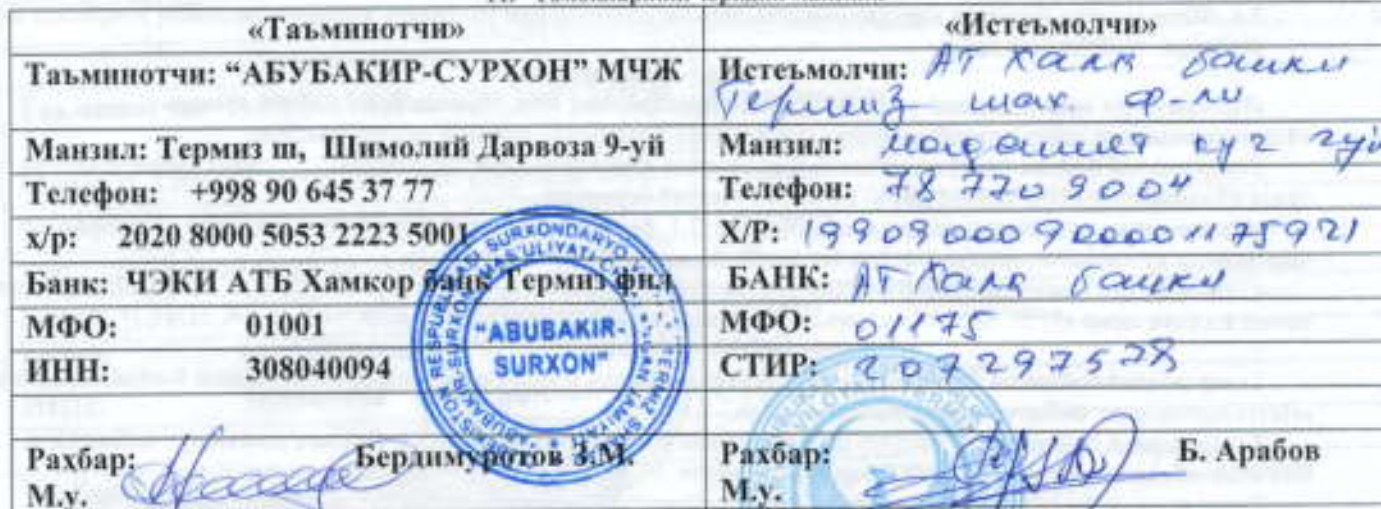 «Таъминотчи»
«Истеъмолчи»
Таъминотчи: “АБУБАКИР-СУРХОН” МЧЖ
Истеъмолчи: АТ Халк банки
Термиз шах. ф-ли
Манзил: Термиз ш, Шимолий Дарвоза 9-уй
Манзил: маданият куч 2 уй
Телефон: +998 90 645 37 77
Телефон: 78 770 90 04
х/р: 2020 8000 5053 2223 5001
Х/Р: 19909000900001175921
Банк: ЧЭКИ АТБ Хамкор банк Термиз фил
БАНК: АТ Халк банки
МФО: 01001
МФО: 01175
ИНН: 308040094
СТИР: 207297528
"ABUBAKIR-
SURXON"
Рахбар: Бердимуротов З.М.
М.у.
Рахбар: Б. Арабов
М.у.